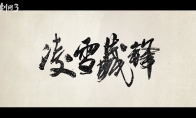 剑网3
凌雪藏鋒